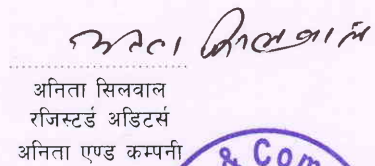 अनिता सिलवाल
अनिता सिलवाल
रजिस्टर्ड अडिटर्स
अनिता एण्ड कम्पनी
& Com